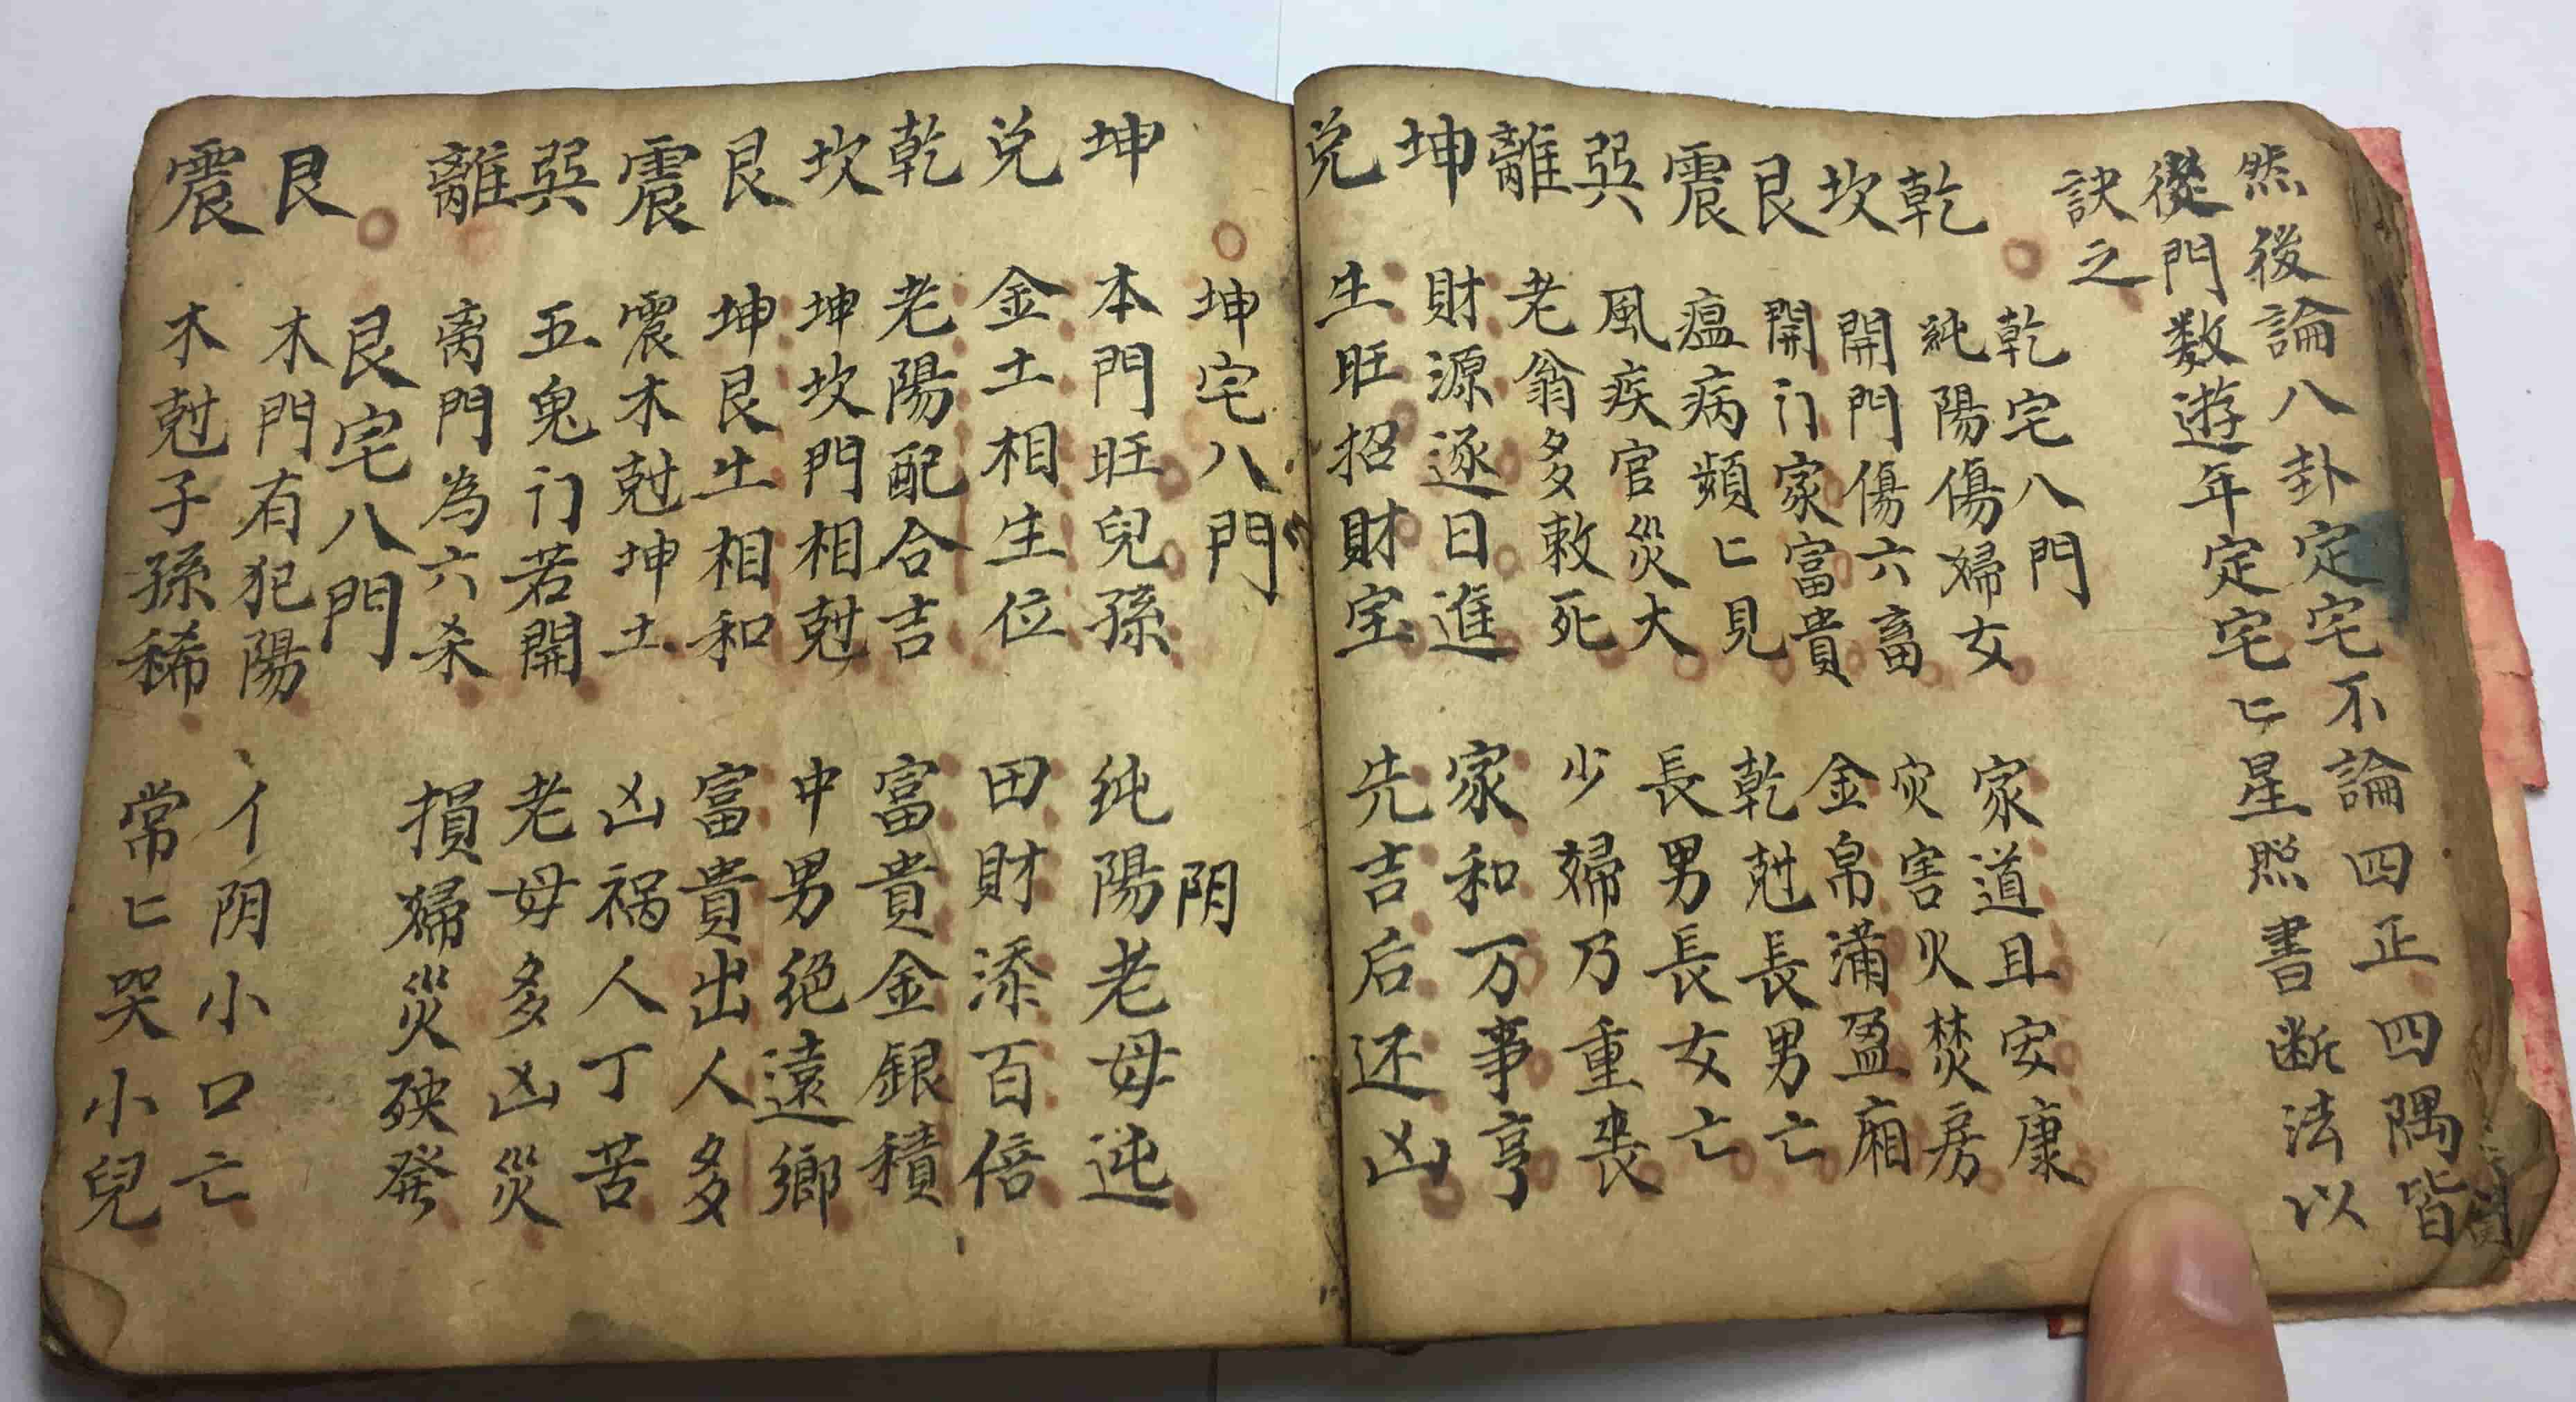 然後論八卦定宅不論四正四隅皆
從門数遊年定宅匕星照書断法以
訣之
乾宅八門
乾 純陽傷婦女 家道且安康
坎 開門傷六畜 灾害火焚房
艮 開门家富貴 金帛满盈廂
震 瘟病頻匕見 乾尅長男亡
巽 風疾官災大 長男長女亡
離 老翁多敕死 少婦乃重喪
坤 財源逐日進 家和万事亨
兑 生旺招財宝 先吉后还凶
坤宅八門 阴
坤 本門旺兒孫 純陽老母迍
兑 金土相生位 田財添百倍
乾 老陽配合吉 富貴金銀積
坎 坤坎門相尅 中男绝遠鄉
艮 坤艮土相和 富貴出人多
震 震木尅坤土 凶祸人丁苦
巽 五鬼门若開 老母多凶災
離 离門為六杀 損婦災殃発
艮宅八門
艮 木門有犯陽 亻阴小口亡
震 木尅子孫稀 常匕哭小兒